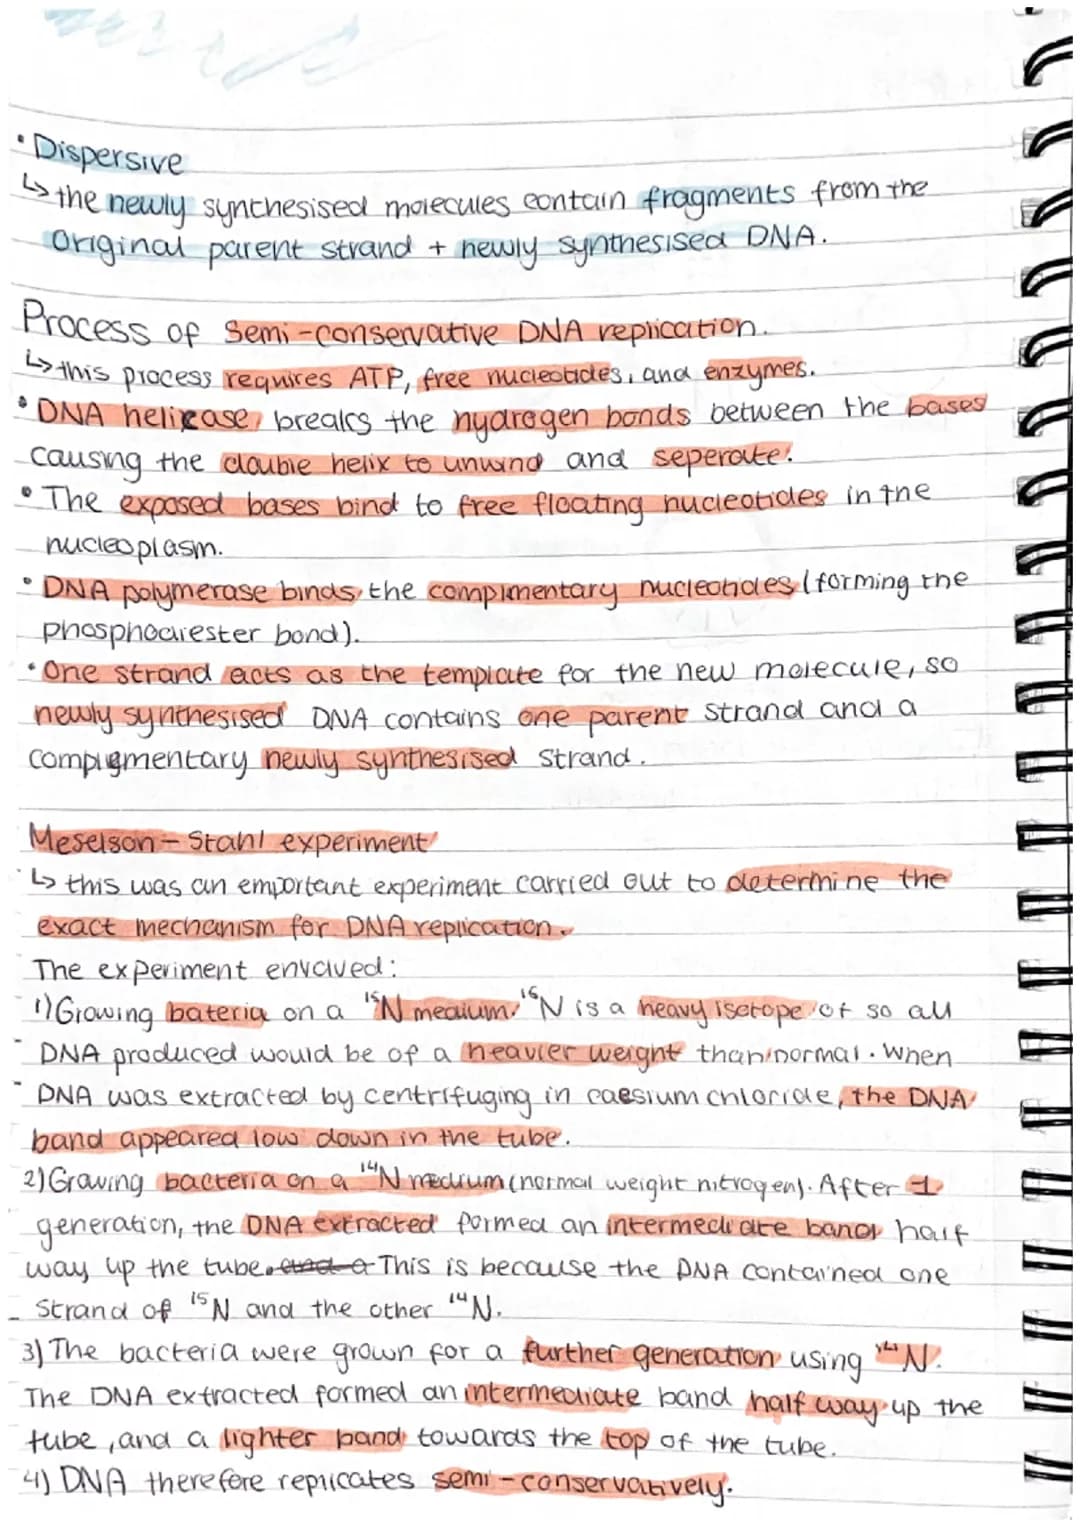 • Dispersive
↳ the newly synthesised molecules contain fragments from the
Original parent strand + newly synthesised DNA.
Process of Semi-conservative DNA replication.
↳ this process requires ATP, free nucleotides, and enzymes.
• DNA helicase breaks the hydrogen bonds between the bases
causing the double helix to unwind and seperate.
• The exposed bases bind to free floating nucleotides in the
nucleoplasm.
• DNA polymerase binds the complimentary nucleotides (forming the
phosphodiester bond).
• One strand acts as the template for the new molecule, so
newly synthesised DNA contains one parent strand and a
complementary newly synthesised strand.
Meselson - Stahl experiment
↳ this was an important experiment carried out to determine the
exact mechanism for DNA replication.
The experiment envolved:
1) Growing bateria on a ¹⁵N medium. ¹⁵N is a heavy isotope of so all
- DNA produced would be of a heavier weight than normal. When
- DNA was extracted by centrifuging in caesium chloride, the DNA
band appeared low down in the tube.
2) Growing bacteria on a ¹⁴N medium (normal weight nitrogen). After 1
generation, the DNA extracted formed an intermediate band half
way up the tube. and a This is because the DNA contained one
- Strand of ¹⁵N and the other ¹⁴N.
3) The bacteria were grown for a further generation using ¹⁴N.
The DNA extracted formed an intermediate band half way up the
tube, and a lighter band towards the top of the tube.
4) DNA therefore replicates semi-conservatively.